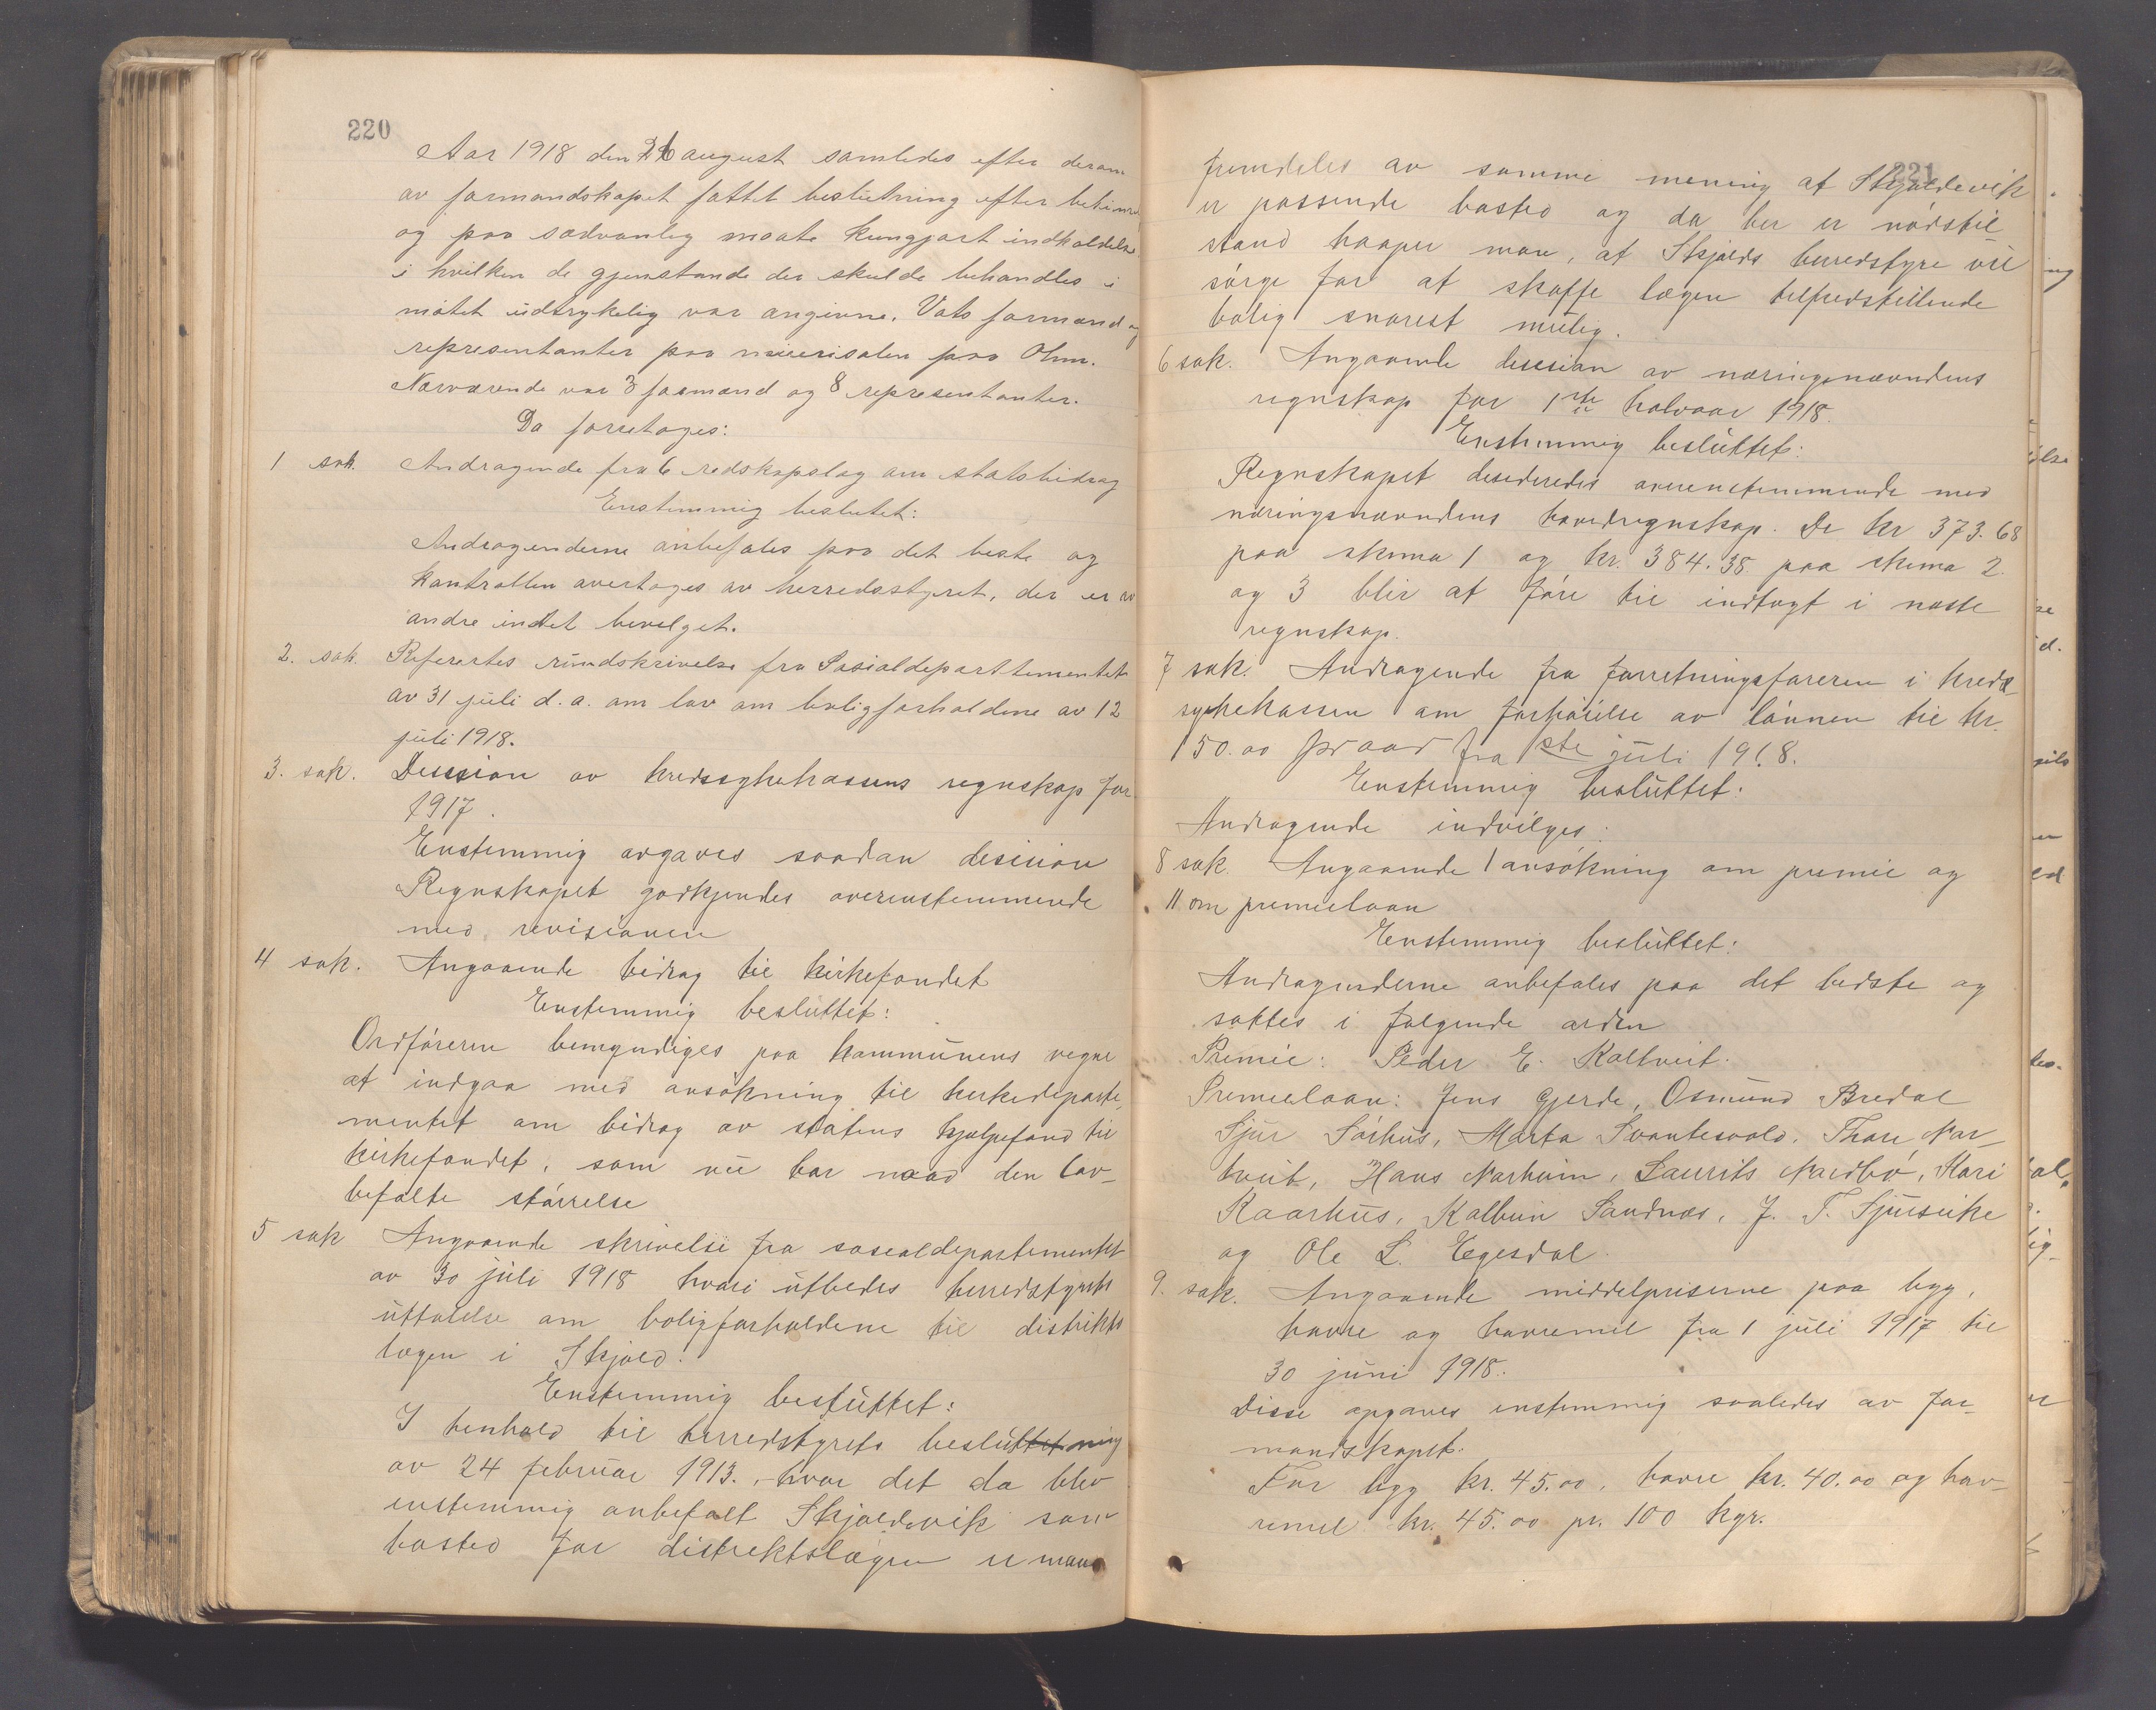 220
Aar 1918 den 26 august samledes efter derom
av formandskapet fattet beslutning efter betimel
og paa sædvanlig maate kungjort indkaldelse
i hvilken de gjenstande der skulde behandles i
møtet uдtrykelig var angivne. Vats formænd og
representanter paa paa Ølen.
Nærværende var 3 formænd og 8 representanter.
Da foretoges:
1 sak. Andragende fra 6 redskapslag om statsbidrag
Enstemmig beslutet:
Andragenderne anbefales paa det beste og
kontrollen overtages av herredsstyret, der er av
andre intet bevelget.
2. sak. Referertes rundskrivelse fra Sosialdeparttementet
av 31 juli d.a. om lov om boligforholdene av 12
juli 1918.
3. sak. Dessision av kredssykekassens regnskap for
1917.
Enstemmig avgaves saadan desision
Regnskapet godkjendes overenstemmende
med revisionen
4 sak. Angaaende bidrag til kirkefondet
Enstemmig besluttet:
Ordføreren bemyndiges paa kommunens vegne
at indgaa med ansøkning til kirkedeparte-
mentet om bidrag av statens hjælpefond til
kirkefondet, som nu har naad den lov-
befalte størrelse
5 sak Angaaende skrivelse fra sosealdepartementet
av 30 juli 1918 hvori utbedes herredstyrets
uttalelse om boligforholdene til distrikts
lægen i Skjold.
Enstemmig besluttet:
I henhold til herredstyrets beslutttetning
av 24 februar 1913. - hvor det da blev
enstemmig anbefalt Skjoldevik som
bosted for distrektslægen er man
221
fremdeles av samme mening at Skjoldevik
er passende bosted og da her er nødstil
stand haaper man, at Skjolds herredstyre vil
sørge for at skaffe lægen tilfredstillende
bolig snarest mulig.
6 sak. Angaaende desesion av næringsnævndens
regnskap for 1ste halvaar 1918.
Enstemmig besluttet:
Regnskapet desederedes overenstemmende med
næringsnævndens hovedregnskap. De kr 373.68
paa skema 1 og kr. 384.38 paa skema 2.
og 3 blir at føre til indtægt i næste
regnskap.
7 sak. Andragende fra forretningsføreren i kreds
sykekassen om forhøielse av lønnen til kr
150.00 pr aar fra 1ste juli 1918.
Enstemmig besluttet:
Andragende indvilges.
8 sak. Angaaende 1 ansøkning om premie og
11 om premielaan
Enstemmig besluttet:
Andragenderne anbefales paa det bedste og
sættes i følgende orden
Premie: Peder E. Kaltveit.
Premielaan: Jens Gjerde, Osmund Bredal
Sjur Sørhus, Marta Svantesvold, Thore Nor-
tveit, Hans Norheim, Laurits Nordbø, Kari
Kaarhus, Kolbein Sandnæs, J. T. Sjurseike
og Ole L. Egesdal.
9. sak. Angaaende middelpriserne paa byg,
havre og havremel fra 1 juli 1917 til
30 juni 1918.
Disse opgaves enstemmig saaledes av for-
mandskapet.
For byg kr. 45.00, havre kr. 40.00 og hav-
remel kr. 45.00 pr. 100 kgr.